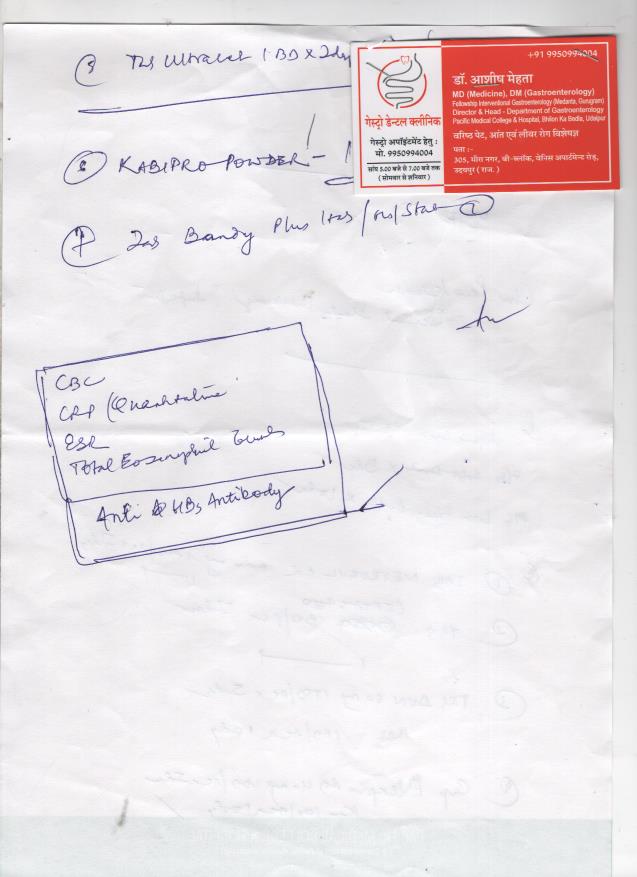 Tab Ultracet 1 BD x 2day
⑥ KABIPRO POWDER –
⑦ Tab Bandy Plus 1tab / /Stat ①
CBC
CRP (Quantitative
ESR
Total Eosinophil
Anti HBs Antibody
+91 9950994004
डॉ. आशीष मेहता
MD (Medicine), DM (Gastroenterology)
Fellowship Interventional Gastroenterology (Medanta, Gurugram)
Director & Head - Department of Gastroenterology
Pacific Medical College & Hospital, Bhilon Ka Bedla, Udaipur
वरिष्ठ पेट, आंत एवं लीवर रोग विशेषज्ञ
पता :-
305, मीरा नगर, बी-ब्लॉक, वेनिस अपार्टमेन्ट रोड़,
उदयपुर (राज.)
गेस्ट्रो डेन्टल क्लीनिक
गेस्ट्रो अपॉइंटमेंट हेतु :
मो. 9950994004
सांय 5.00 बजे से 7.00 बजे तक
(सोमवार से शनिवार)